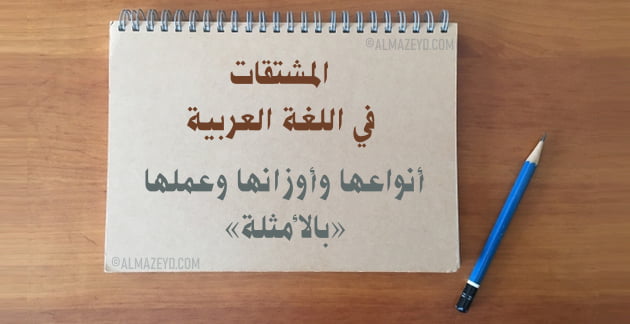 ©ALMAZEYD.COM
المشتقات
في اللغة العربية
أنواعها وأوزانها وعملها
«بالأمثلة»
©ALMAZEYD.COM